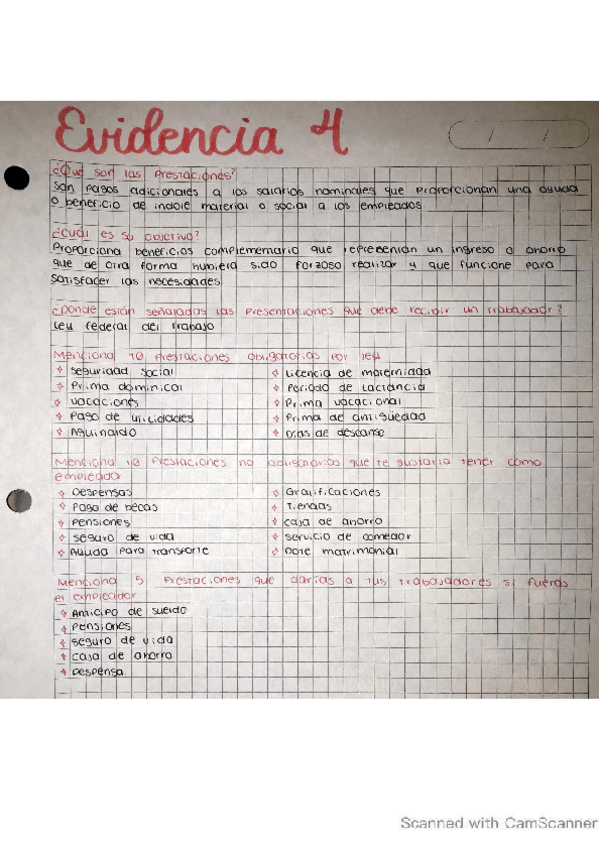 Evidencia 4
/ /
¿Qué son las Prestaciones?
Son pagos adicionales a los salarios nominales que proporcionan una ayuda
o beneficio de indole material o social a los empleados.
¿Cuál es su objetivo?
Proporciona beneficios complementario que representan un ingreso o ahorro
que de otra forma hubiera sido forzoso realizar y que funcione para
satisfacer las necesidades.
¿Dónde están señaladas las Presentaciones que debe recibir un trabajador?
Ley federal del trabajo
Menciona 10 Prestaciones obligatorias por ley
Seguridad social
Licencia de maternidad
Prima dominical
Periodo de lactancia
Vacaciones
Prima vacacional
Pago de utilidades
Prima de antigüedad
Aguinaldo
Dias de descanso
Menciona 10 Prestaciones no obligatorias que te gustaria tener como
empleado
Despensas
Gratificaciones
Pago de becas
Tiendas
Pensiones
Caja de ahorro
Seguro de vida
Servicio de comedor
Ayuda para transporte
Dote matrimonial
Menciona 5 Prestaciones que darías a tus trabajadores si fueras
el empleador
Anticipo de sueldo
Pensiones
Seguro de vida
Caja de ahorro
Despensa.
Scanned with CamScanner